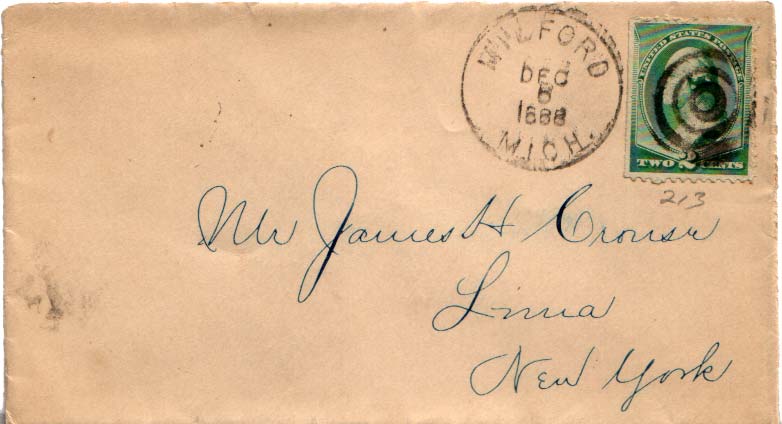 MILFORD
DEC
8
1888
MICH.
UNITED STATES POSTAGE
TWO 2 CENTS
213
Mr James H Crouse
Lima
New York